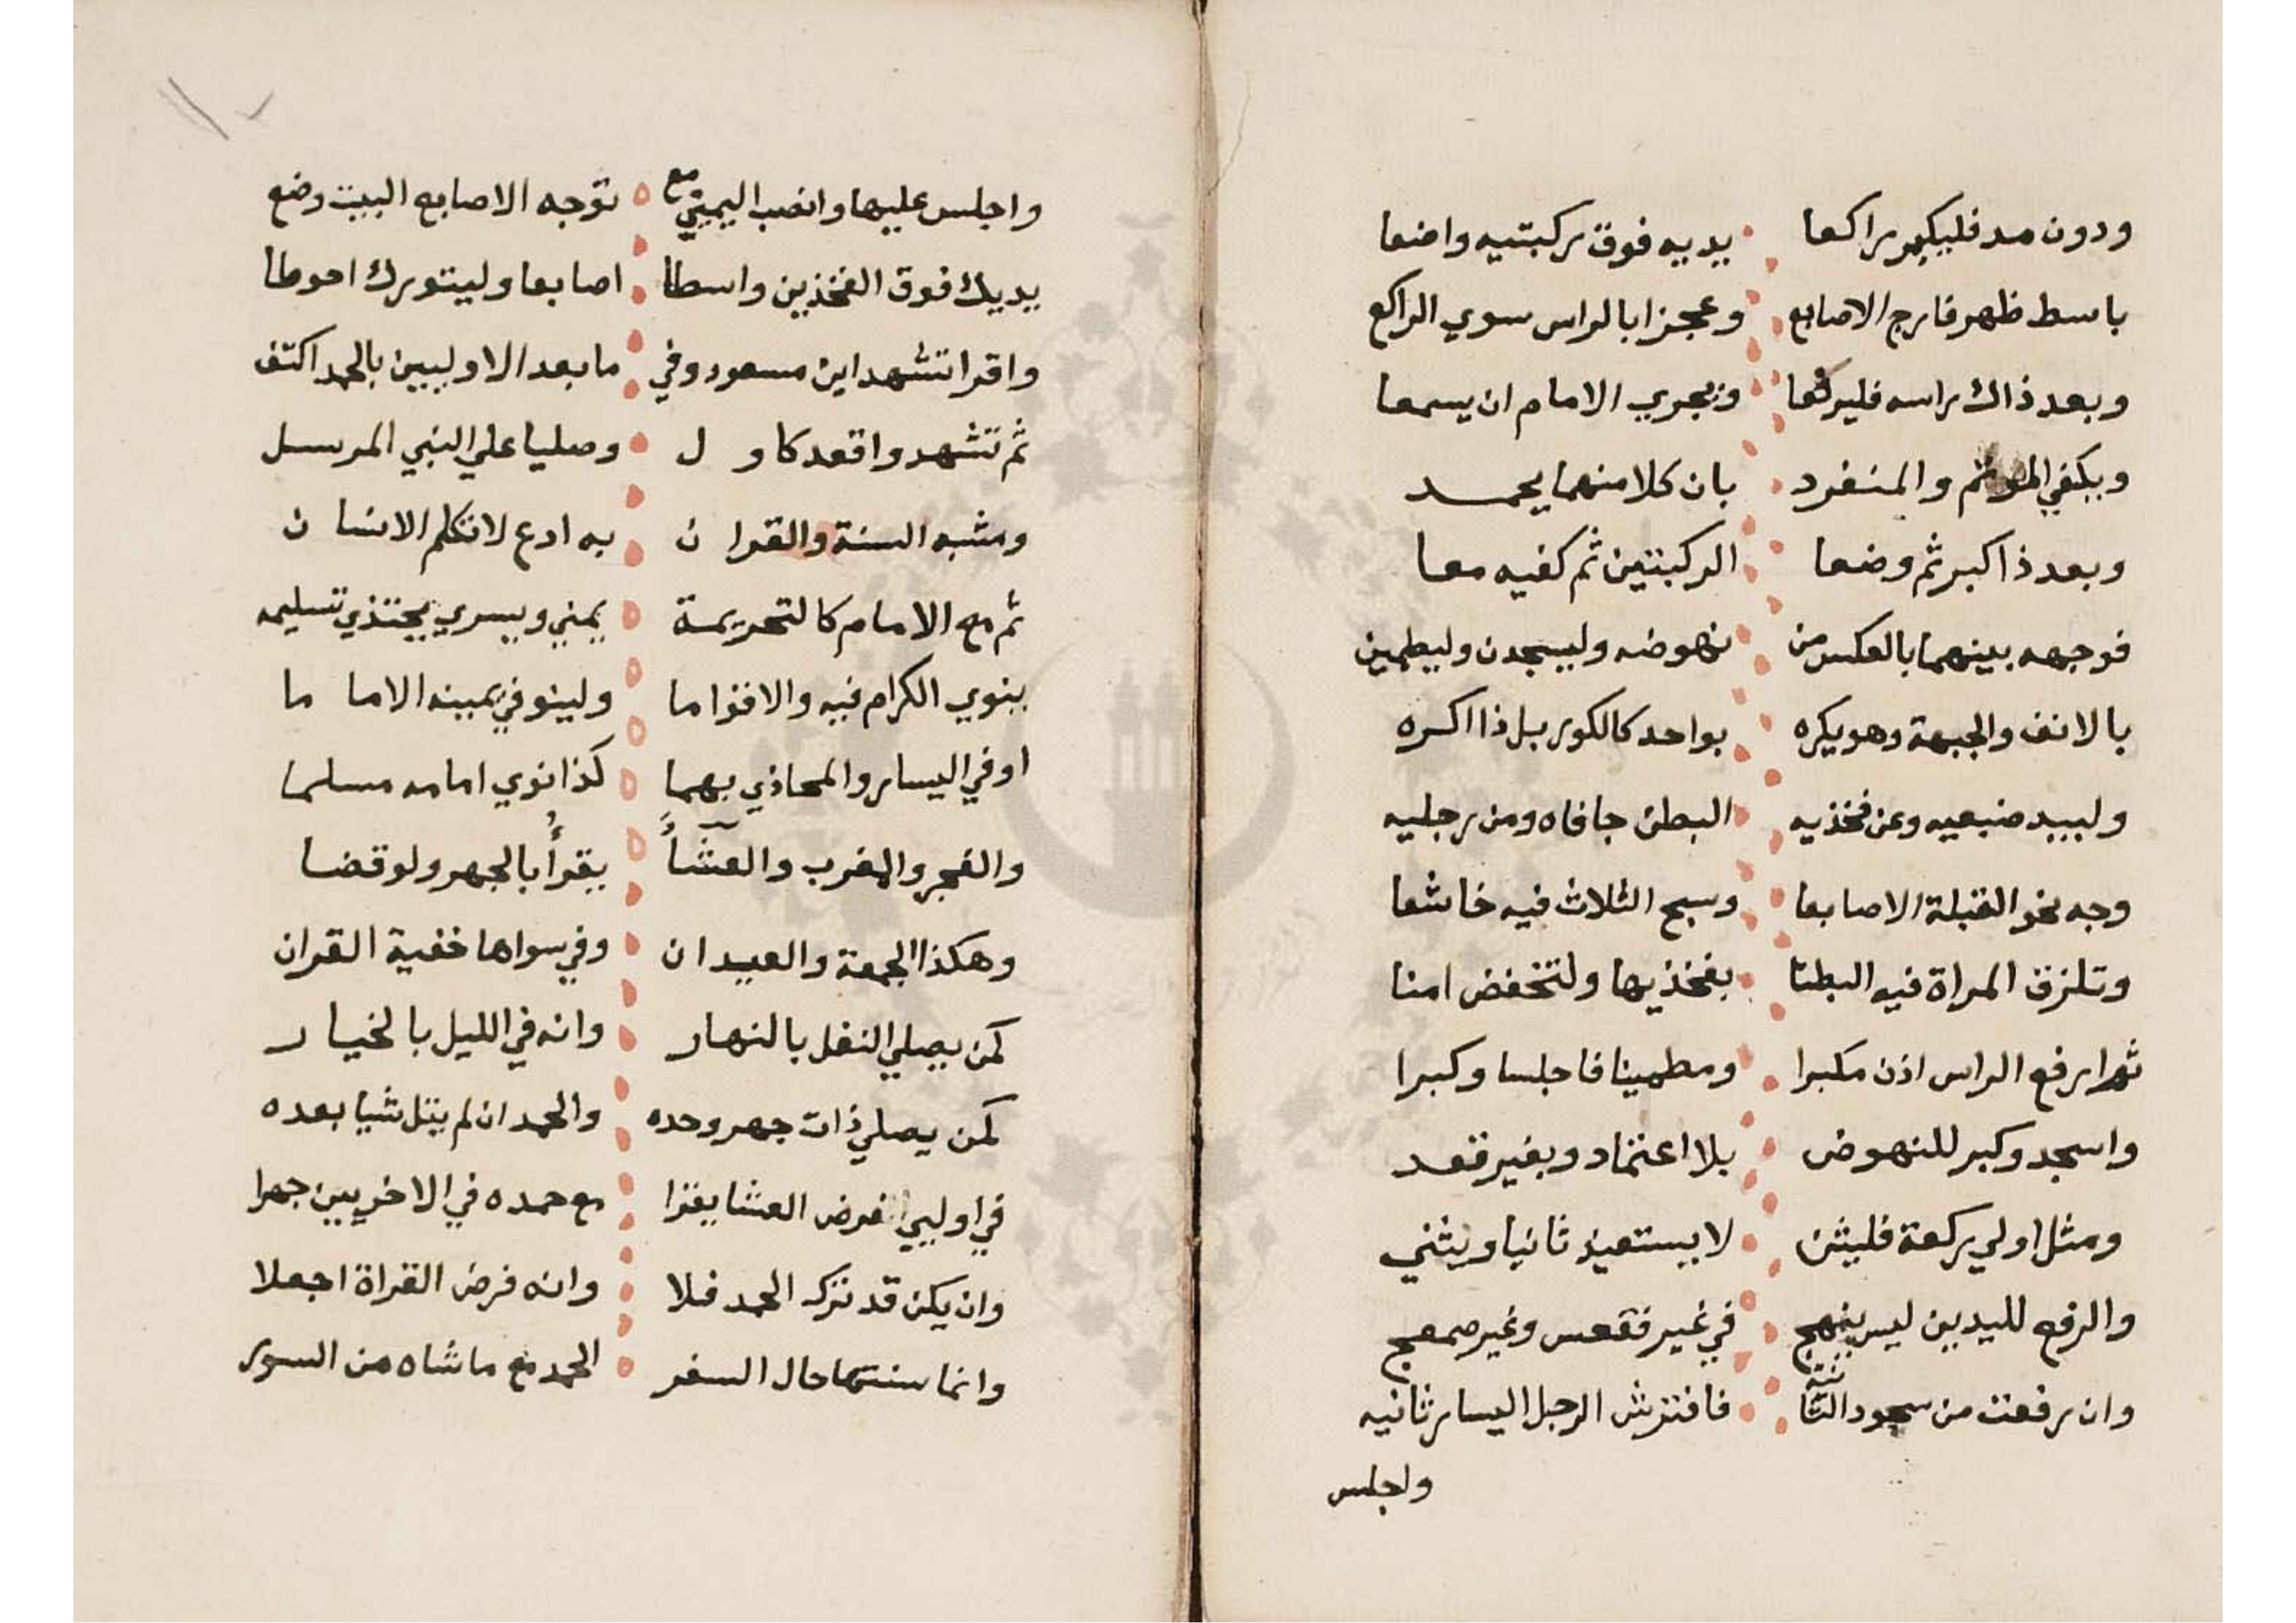 ودون مد فليكبر راكعا يديه فوق ركبتيه واضعا
باسط ظهر فارج الاصابع وعجزا بالراس سوي الراكع
وبعد ذاك راسه فليرفعا ويجري الامام ان يسمعا
ويكفي الموتم والمنفرد بان كلا منهما يحمد
وبعد ذا كبر ثم وضعا الركبتين ثم كفيه معا
فوجهه بينهما بالعكس من نهوضه وليسجدن وليطمين
بالانف والجبهة وهو يكره بواحد كالكور بل ذا اكره
وليبد ضبعيه وعن فخذيه البطن جافاه ومن رجليه
وجه نحو القبلة الاصابعا وسبح الثلاث فيه خاشعا
وتلزق المراة فيه البطنا بفخذيها ولتخفض امنا
ثم ارفع الراس اذن مكبرا ومطمينا فاجلسا وكبرا
واسجد وكبر للنهوض بلا اعتماد وبغير قعد
ومثل اولي ركعة فليثن لا يستعيذ ثانيا ويثني
والرفع لليدين ليس ينهج في غير فقعس وغير صمعج
وان رفعت من سجود الثانية فافترش الرجل اليسار ثانيه
واجلس
واجلس عليها وانصب اليميني مع توجه الاصابع البيت وضع
يديك فوق الفخذين واسطا اصابعا وليتورك احوطا
واقرا تشهد ابن مسعود وفي ما بعد الاوليين بالحمد اكتف
ثم تشهد واقعد كاول وصليا علي النبي المرسل
ومشبه السنة والقران به ادع لا تكلم الانسان
ثم مع الامام كالتحريمة يمني ويسري يحتذي تسليمه
ينوي الكرام فيه والاقواما ولينو في يمينه الاماما
او في اليسار والمحاذي بهما كذا نوي امامه مسلما
والفجر والمغرب والعشاً يقرأ بالجهر ولو قضا
وهكذا الجمعة والعيدان وفي سواها خفية القران
كمن يصلي النفل بالنهار وانه في الليل بالخيار
كمن يصلي ذات جهر وحده والحمد ان لم يتل شيا بعده
في اوليي فرض العشا يقرا مع حمده في الاخريين جهرا
وان يكن قد ترك الحمد فلا وانه فرض القراة اجعلا
وانما سنتها حال السفر الحمد مع ما شاه من السور